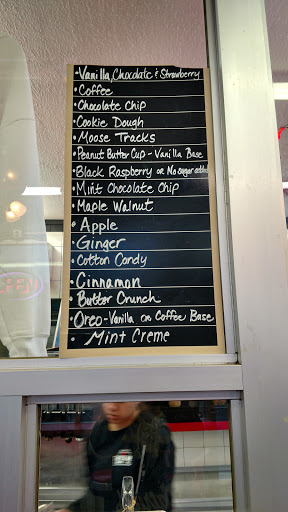 •Vanilla, Chocolate & Strawberry
•Coffee
•Chocolate Chip
•Cookie Dough
•Moose Tracks
•Peanut Butter Cup - Vanilla Base
•Black Raspberry or No sugar added
•Mint Chocolate Chip
•Maple Walnut
•Apple
•Ginger
•Cotton Candy
•Cinnamon
•Butter Crunch
•Oreo-Vanilla or Coffee Base
•Mint Creme